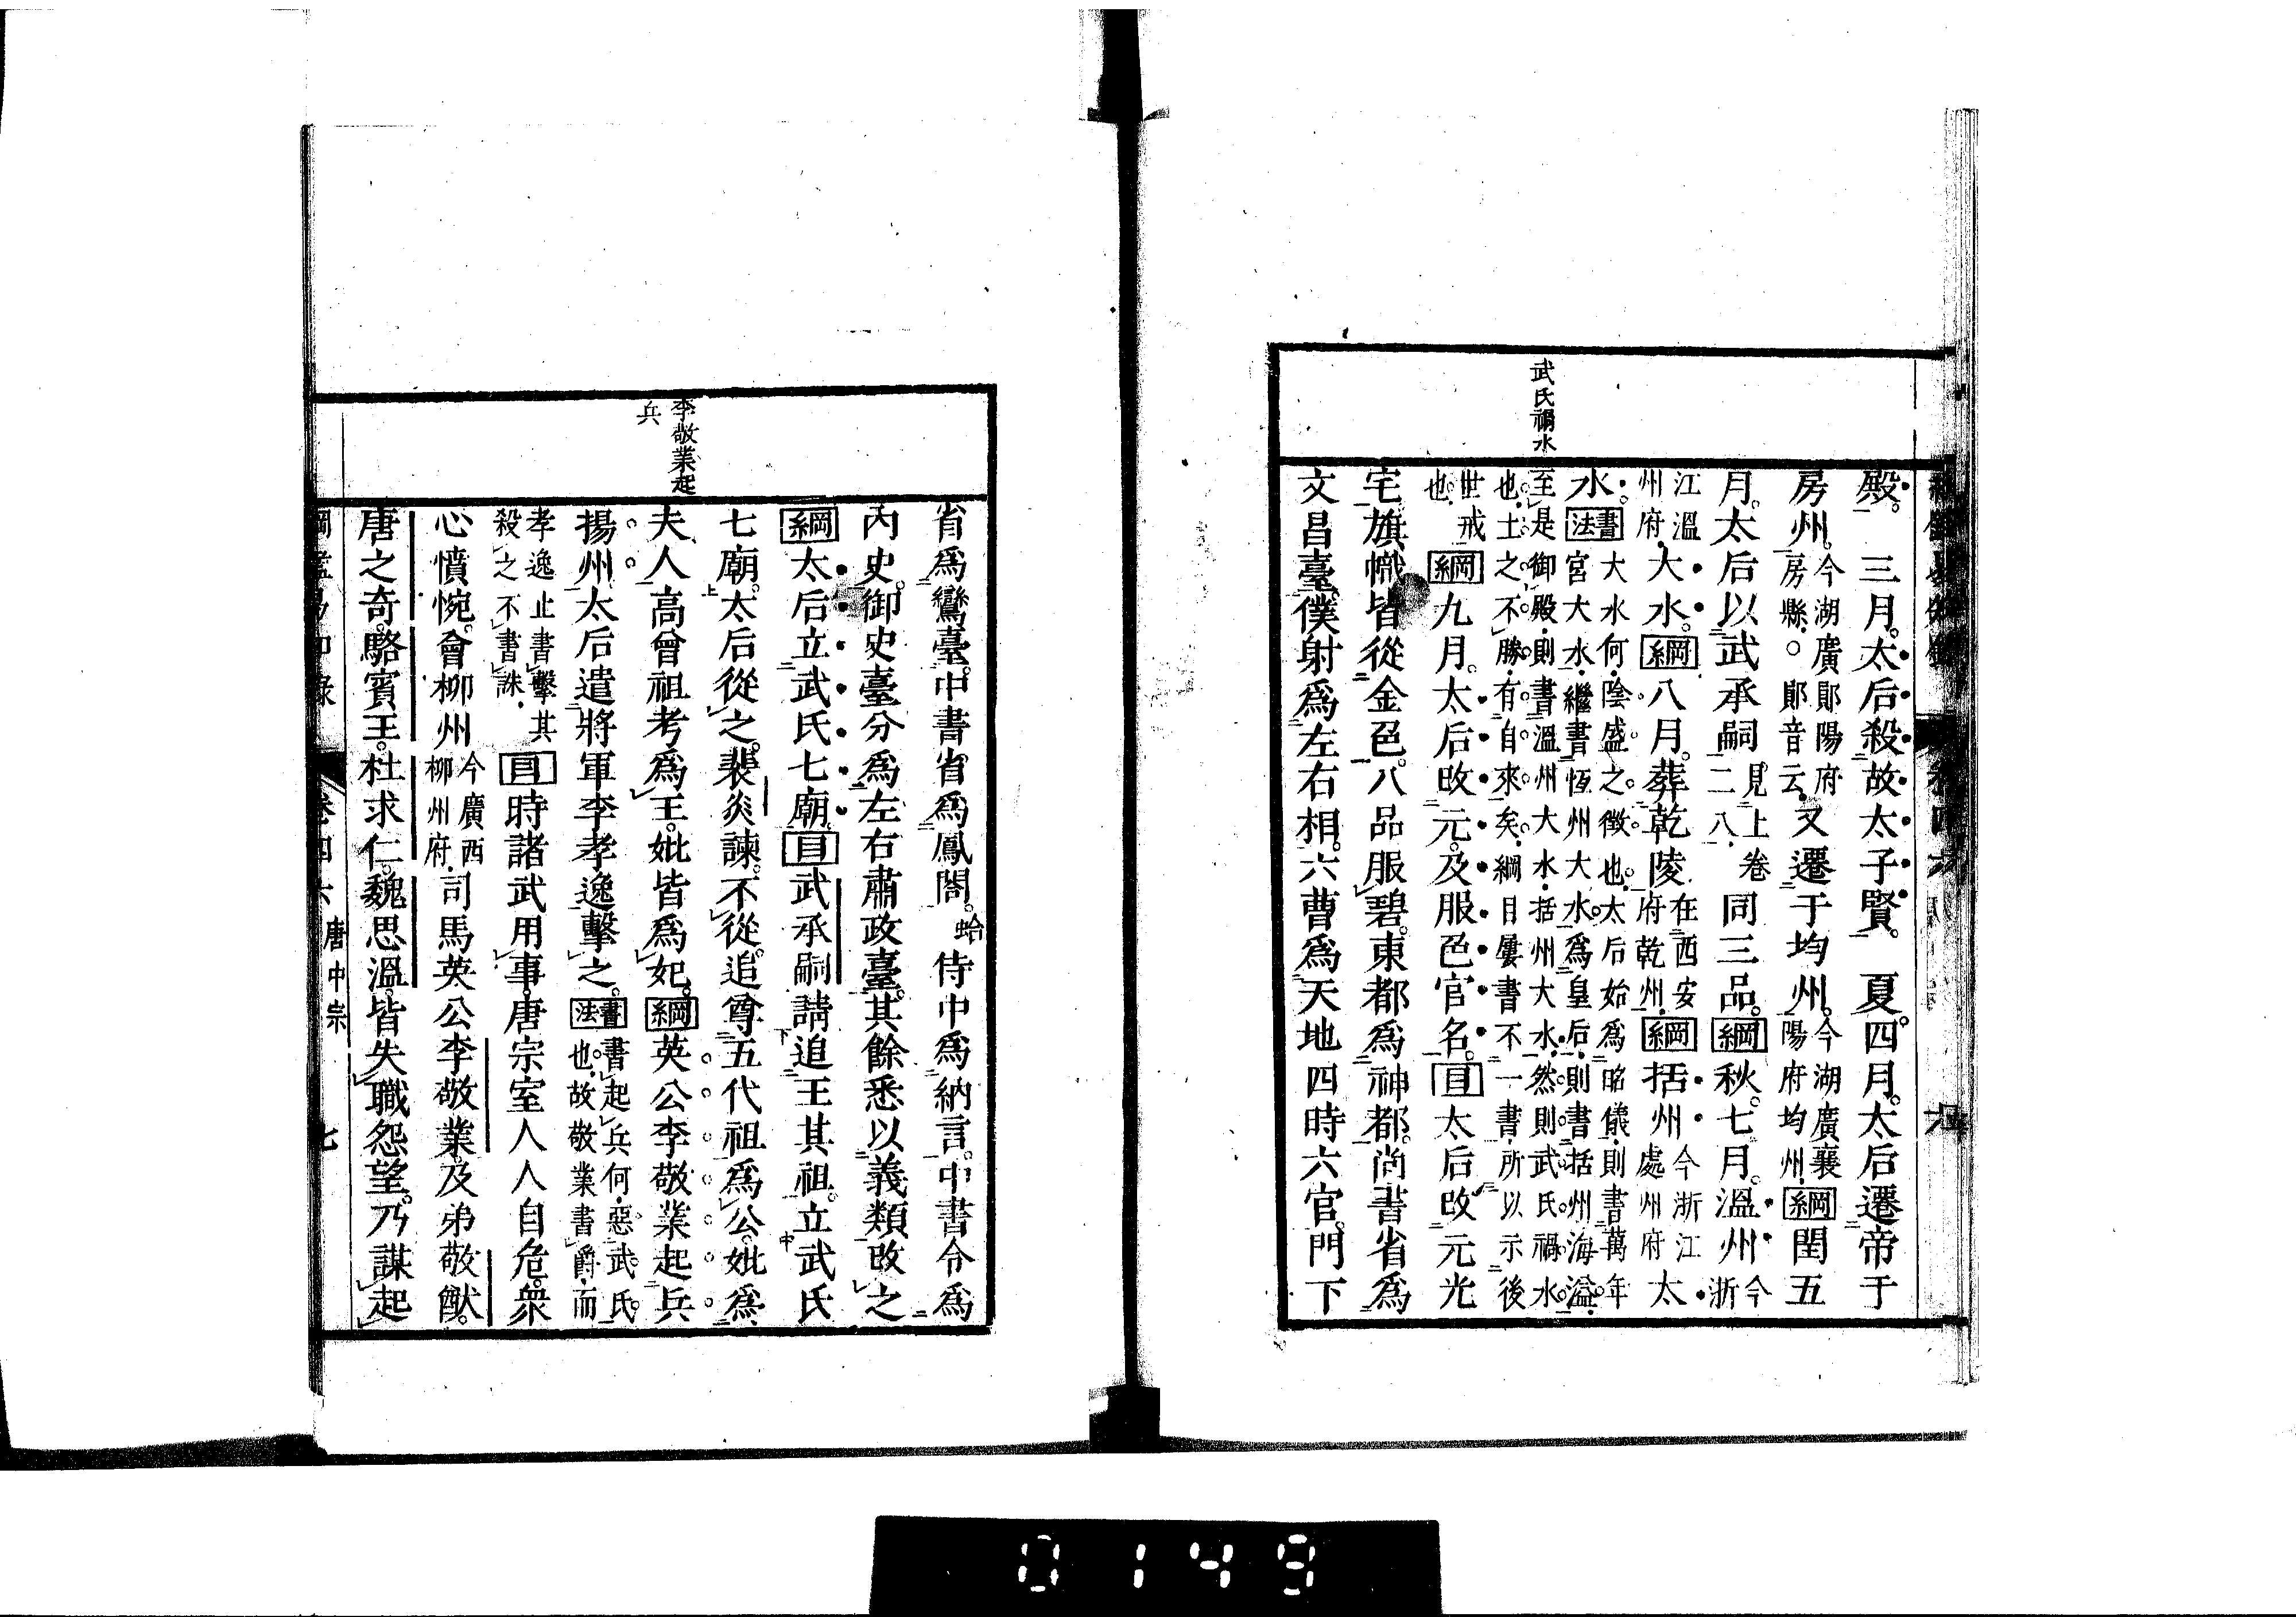 武氏禍水
殿。　三月。太后殺故太子賢。　夏。四月。太后遷帝于
房州。今湖廣鄖陽府房縣。○鄖音云。又遷于均州。今湖廣襄陽府均州。綱閏五
月。太后以武承嗣見上卷二八。同三品。綱秋。七月。溫州今浙
江溫州府。大水。綱八月。葬乾陵在西安府乾州。綱括州今浙江處州府太
水。書法大水何。陰盛之徵也。太后始爲昭儀。則書萬年
宮大水。繼書恆州大水。爲皇后。則書括州海溢。
至是御殿。則書溫州大水。括州大水。然則武氏禍水
也。土之不勝。有自來矣。綱目屢書不一書。所以示後
世戒也。綱九月。太后改元。及服色官名。目太后改元光
宅。旗幟皆從金色。八品服碧。東都爲神都。尚書省爲
文昌臺。僕射爲左右相。六曹爲天地四時六官。門下
李敬業起
兵
省爲鸞臺。中書省爲鳳閣。蛤侍中爲納言。中書令爲
內史。御史臺分爲左右肅政臺。其餘悉以義類改之
綱太后立武氏七廟。目武承嗣請追王其祖。立武氏
七廟。太后從之。裴炎諫。不從。追尊五代祖爲公。妣爲
夫人。高曾祖考爲王。妣皆爲妃。綱英公李敬業起兵
揚州。太后遣將軍李孝逸擊之。書法書起兵何。惡武氏也。故敬業書爵。而
孝逸止書擊其殺之不書誅。目時諸武用事。唐宗室人人自危。衆
心憤惋。會柳州今廣西柳州府。司馬英公李敬業。及弟敬猷。
唐之奇。駱賓王。杜求仁。魏思溫。皆失職怨望。乃謀起
卷四六
唐中宗
七